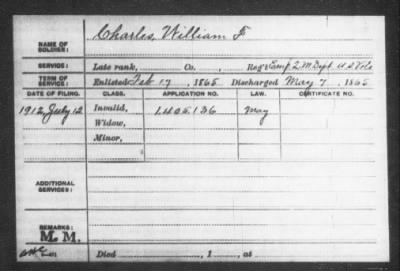 Charles, William F
NAME OF SOLDIER:
SERVICE: Late rank, Co., Reg't Emp. Q M Dept. U S Vols
TERM OF SERVICE: Enlisted Feb 17, 1865 Discharged May 7, 1865
DATE OF FILING. CLASS. APPLICATION NO. LAW. CERTIFICATE NO.
1912 July 12 Invalid, 1405136 May
Widow,
Minor,
ADDITIONAL SERVICES:
REMARKS:
M. M.
Died , 1 , at